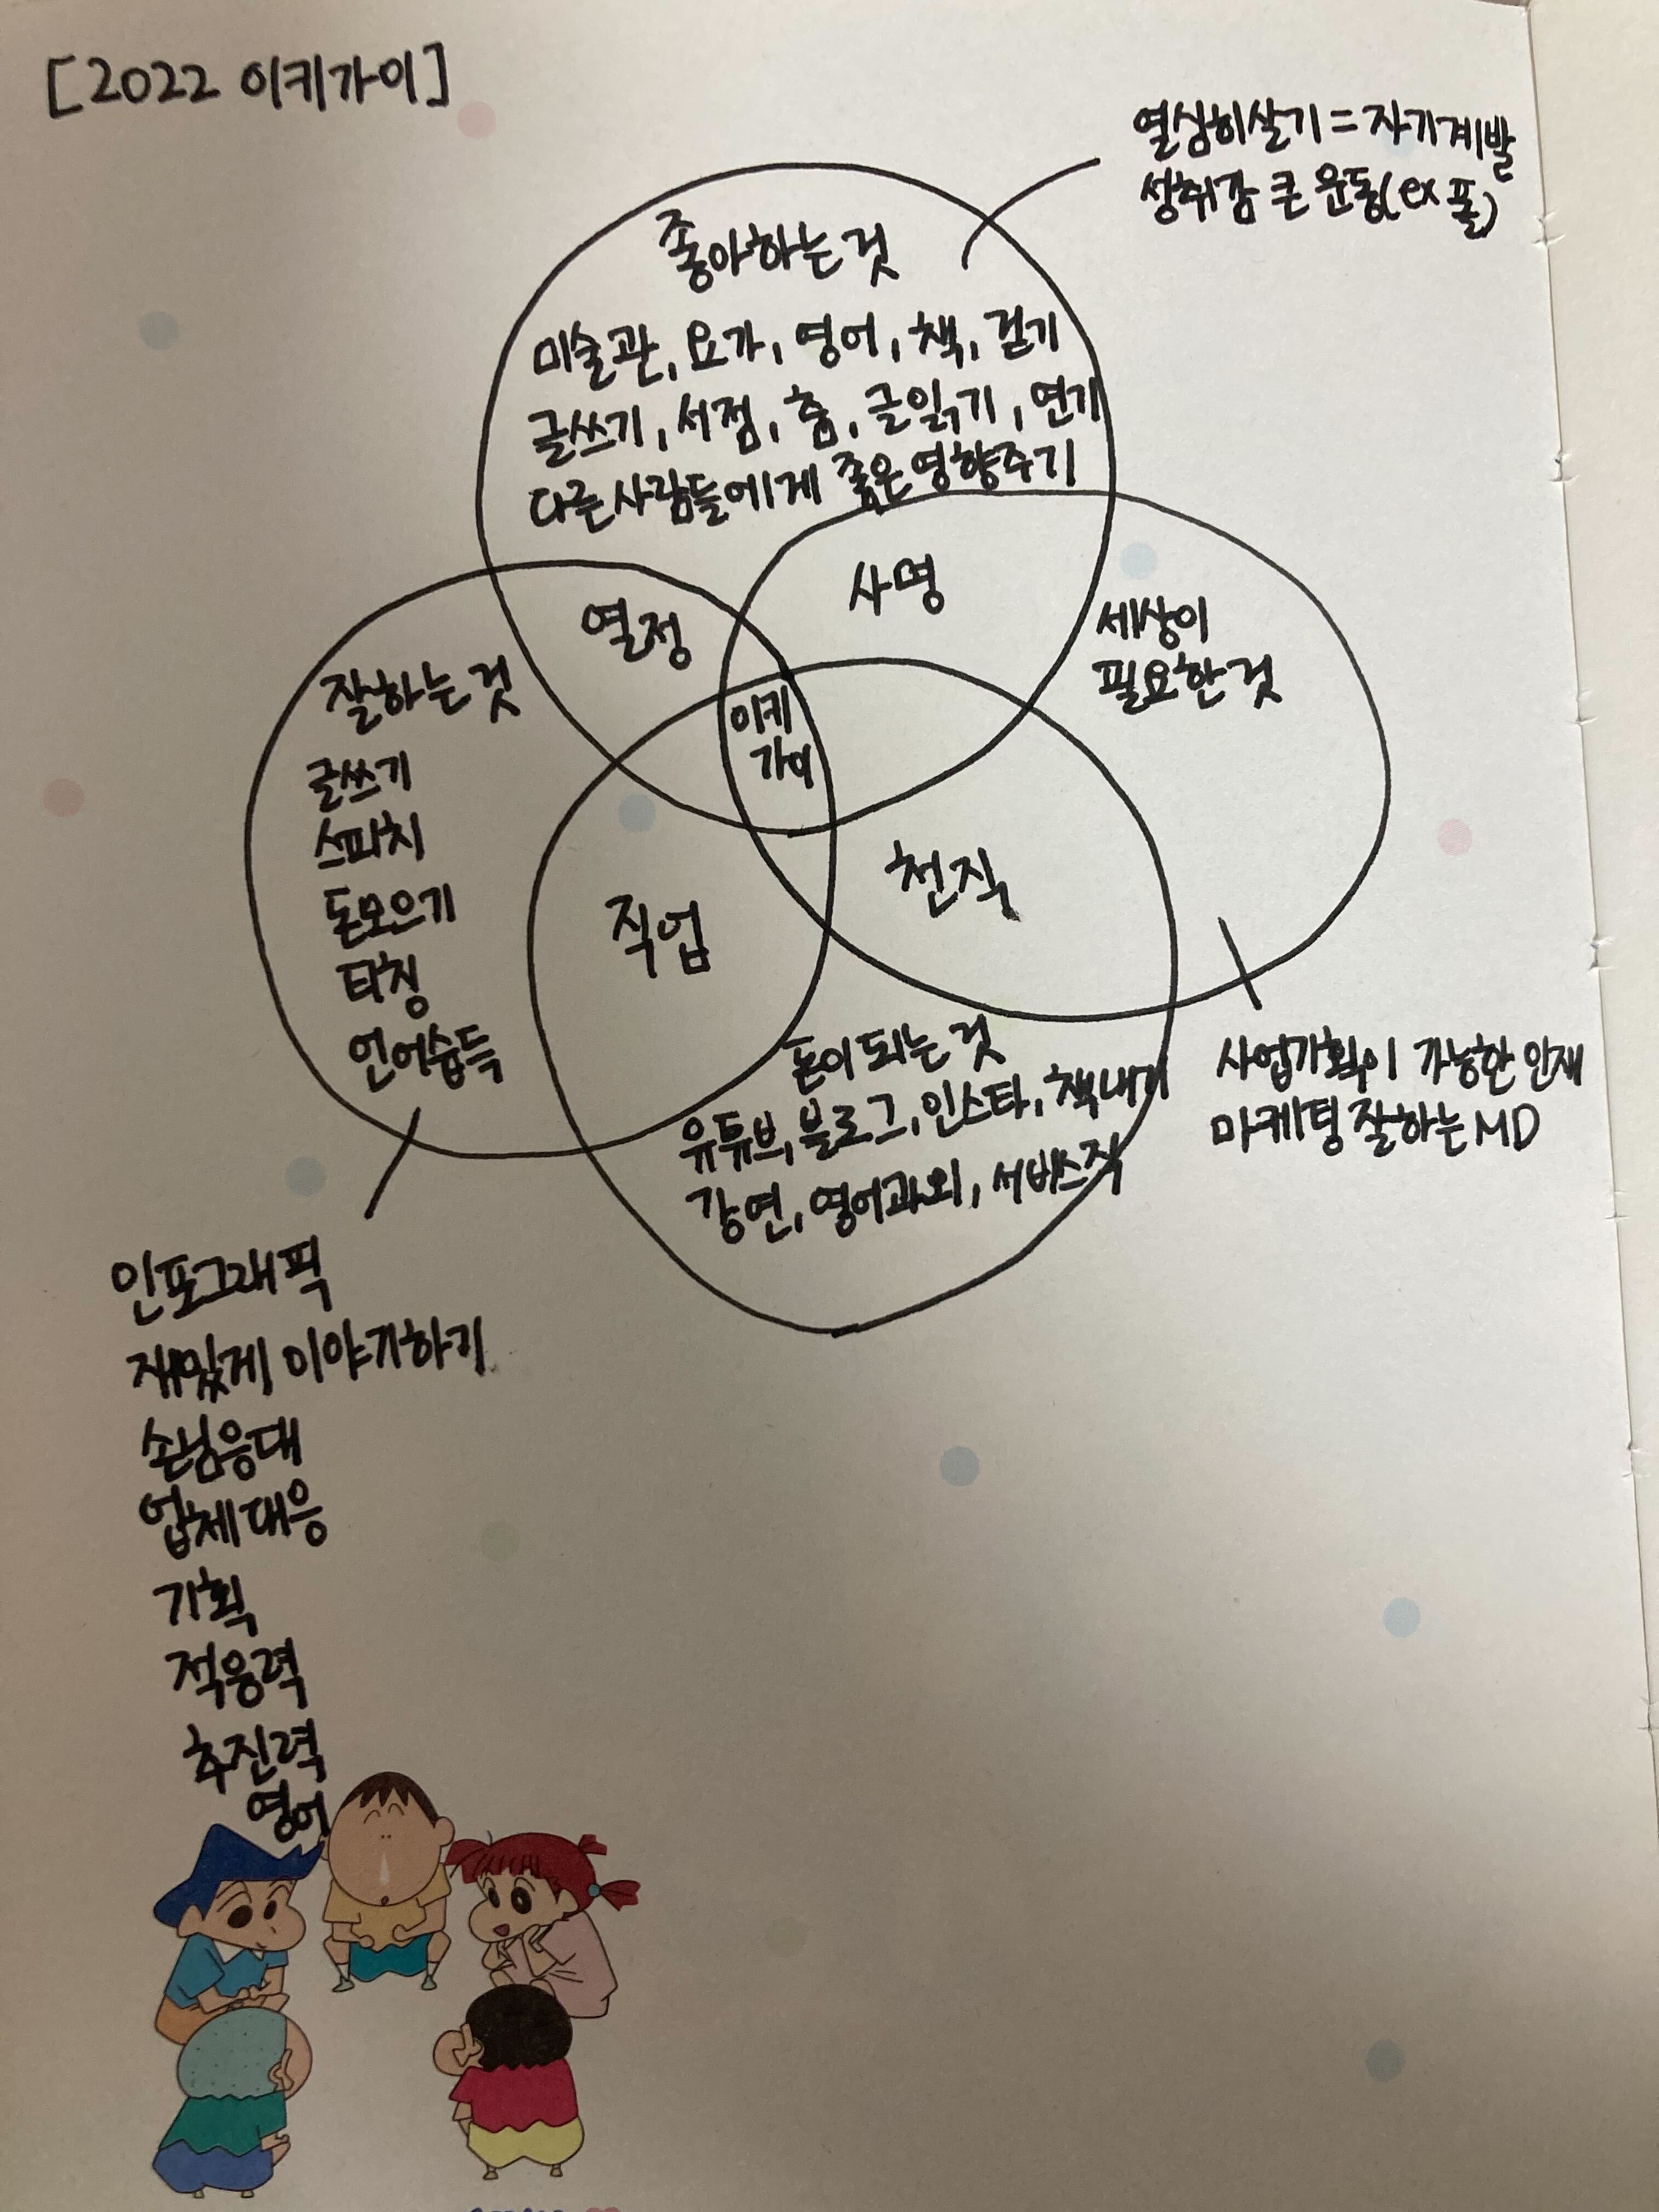 [2022 이키가이]
열심히살기 = 자기계발
성취감 큰 운동(ex 폴)
좋아하는 것
미술관, 요가, 영어, 책, 걷기
글쓰기, 서점, 춤, 글읽기, 연기
다른사람들에게 좋은영향주기
사명
열정
세상이
필요한 것
잘하는 것
이키
가이
글쓰기
스피치
돈모으기
티칭
언어습득
천직
직업
돈이 되는 것
유튜브, 블로그, 인스타, 책내기
강연, 영어과외, 서비스직
사업기획이 가능한 인재
마케팅 잘하는 MD
인포그래픽
재밌게 이야기하기
손님응대
업체대응
기획
적응력
추진력
영어